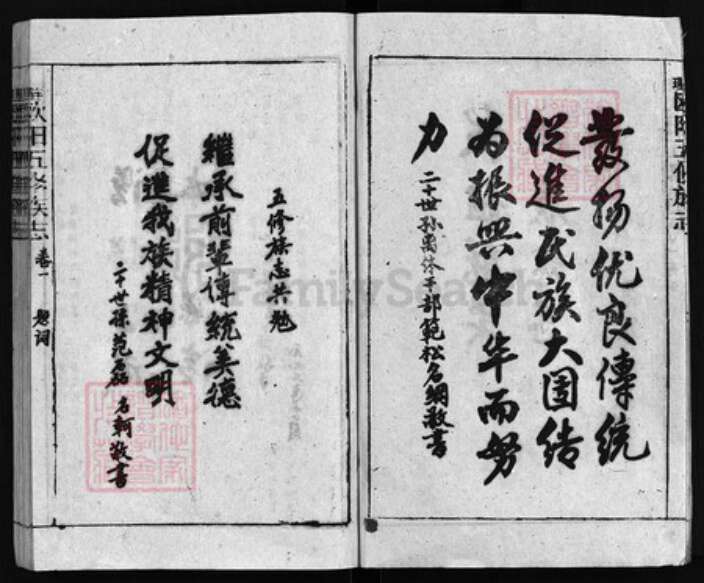 發扬优良傳統
促進民族大团结
为振興中华而努
力
二十世孙离休干部範松名綱敬書
五修族志共勉
繼承前輩傳統美德
促進我族精神文明
二十世孫范磊名軻敬書
五修族志 卷一 題词
FamilySearch